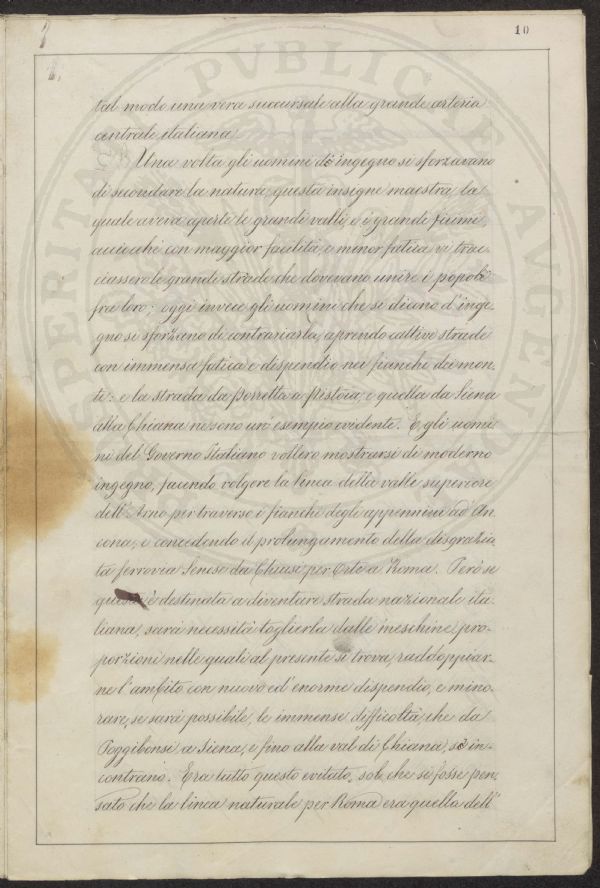 10
tal modo una vera succursale alla grande arteria
centrale italiana.
Una volta gli uomini d'ingegno si sforzavano
di secondare la natura, questa insigne maestra, la
quale aveva aperte le grandi valli e i grandi fiumi,
acciocché con maggior facilità, e minor fatica vi trac-
ciassero le grandi strade che dovevano unire i popoli
fra loro; oggi invece gli uomini che si dicono d'inge-
gno si sforzano di contrariarla, aprendo cattive strade
con immensa fatica e dispendio nei fianchi dei mon-
ti: e la strada da Porretta a Pistoia, e quella da Siena
alla Chiana ne sono un'esempio evidente. E gli uomi-
ni del Governo Italiano vollero mostrarsi di moderno
ingegno, facendo volgere la linea della valle superiore
dell'Arno per traverso i fianchi degli appennini ad An-
cona; e concedendo il prolungamento della disgrazia-
ta ferrovia Senese da Chiusi per Orte a Roma. Però se
questa è destinata a diventare strada nazionale ita-
liana, sarà necessità toglierla dalle meschine pro-
porzioni nelle quali al presente si trova, raddoppiar-
ne l'ambito con nuovo ed enorme dispendio, e mino-
rare, se sarà possibile, le immense difficoltà che da
Poggibonsi a Siena, e fino alla val di Chiana, s'in-
contrano. Era tutto questo evitato, sol che si fosse pen-
sato che la linea naturale per Roma era quella dell'
PVBLICAE
AVGEND
SPERITA